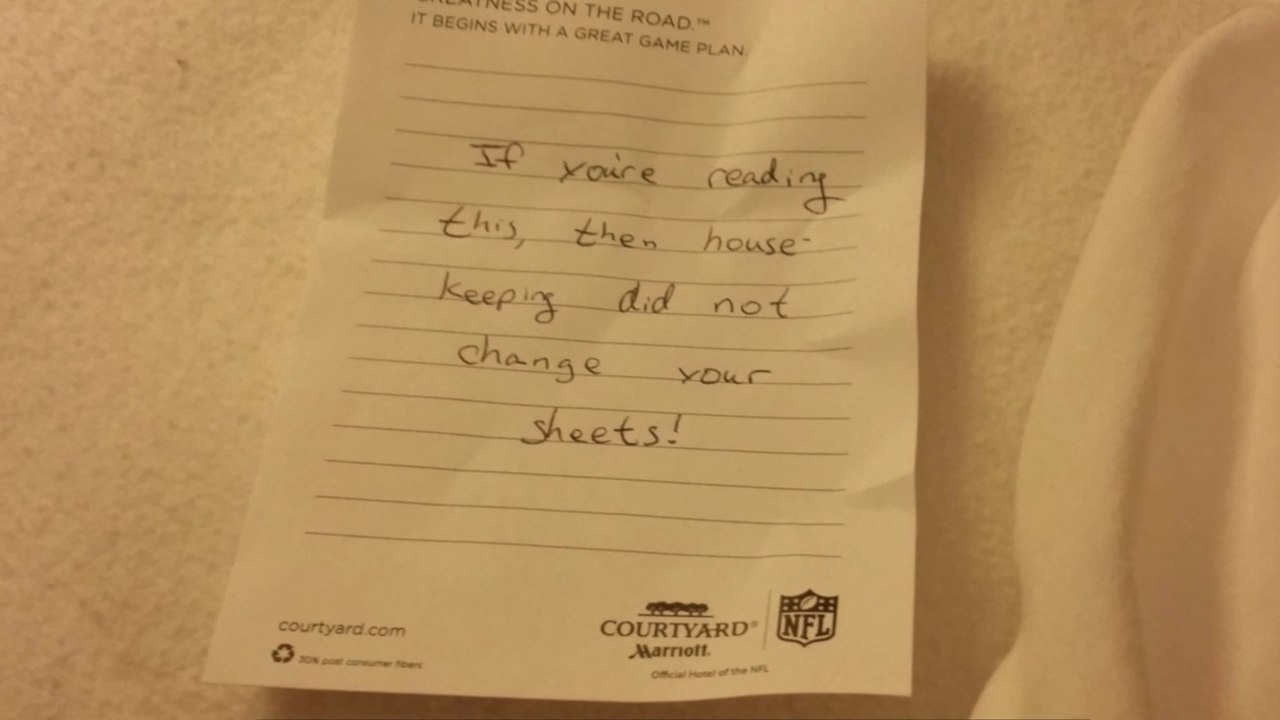 GREATNESS ON THE ROAD.™
IT BEGINS WITH A GREAT GAME PLAN.
If you're reading
this, then house-
keeping did not
change your
sheets!
courtyard.com
30% post consumer fibers
COURTYARD®
Marriott.
Official Hotel of the NFL
NFL